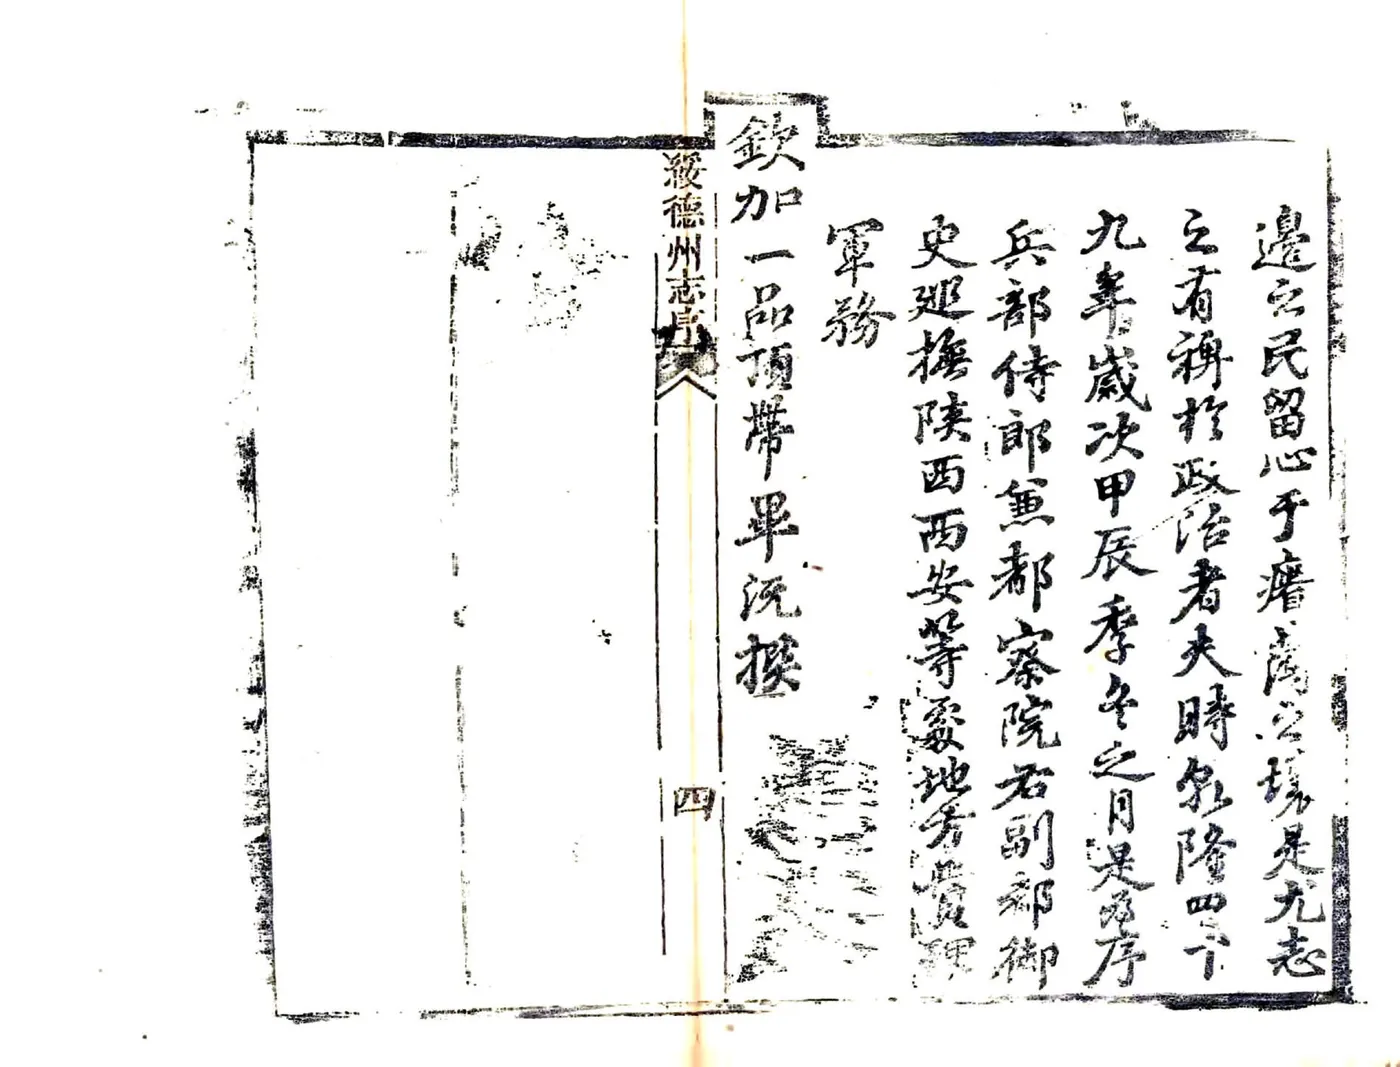 邊之民留心于瘠薄之壤是尤志
之有裨於政治者夫時乾隆四十
九年歲次甲辰季冬之月是為序
兵部侍郎兼都察院右副都御
史廵撫陝西西安等處地方贊理
軍務
欽加一品頂帶畢沅撰
綏德州志序
四